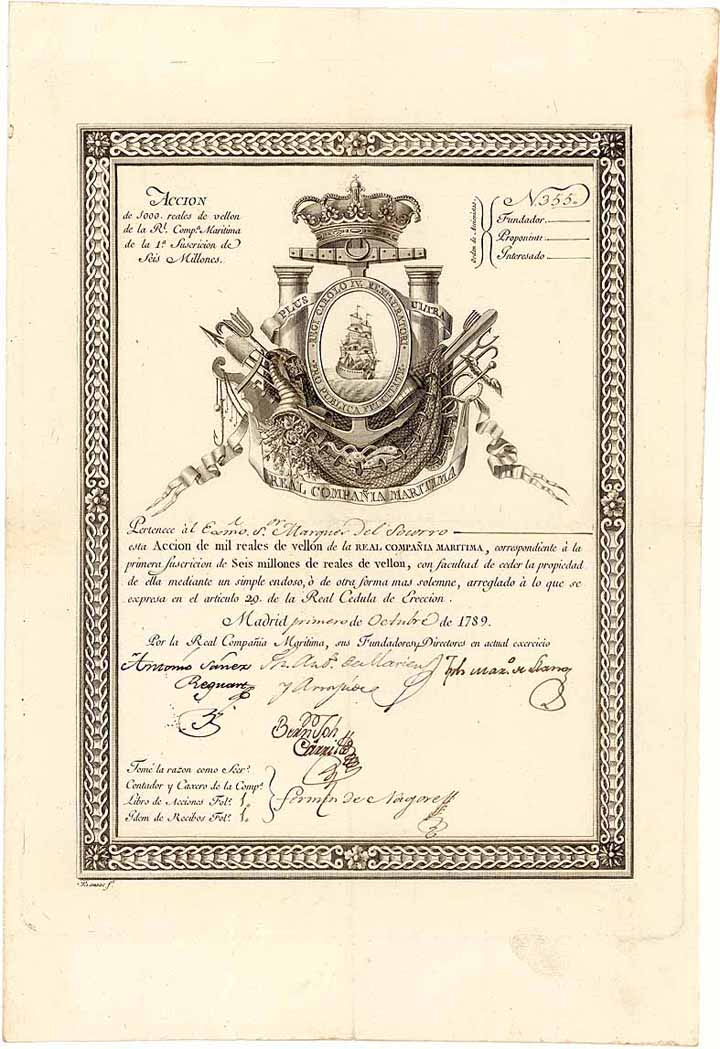 ACCION
de 1000. reales de vellon
de la Rl. Compa. Maritima
de la 1a. Suscricion de
Seis Millones.
Orden de Accionistas
N. 355.
Fundador
Proponente
Interesado
PLUS ULTRA
REGI CAROLO IV. RESTAURATORI
PRO PUBLICA FELICITATE
REAL COMPAÑIA MARITIMA
Pertenece àl Exmo. Sor. Marques del Socorro
esta Accion de mil reales de vellón de la REAL COMPAÑIA MARITIMA, correspondiente à la
primera suscricion de Seis millones de reales de vellon, con facultad de ceder la propiedad
de ella mediante un simple endoso, ò de otra forma mas solemne, arreglado à lo que se
expresa en el articulo 29. de la Real Cedula de Ereccion.
Madrid primero de Octubre de 1789.
Por la Real Compañia Maritima, sus Fundadores y Directores en actual exercicio
Antonio Sañez
Reguart
Tomé la razon como Secro.
Contador y Caxero de la Compa.
Libro de Acciones Folo. 1o.
Ydem de Recibos Folo. 1o.
Fermin de Nagore